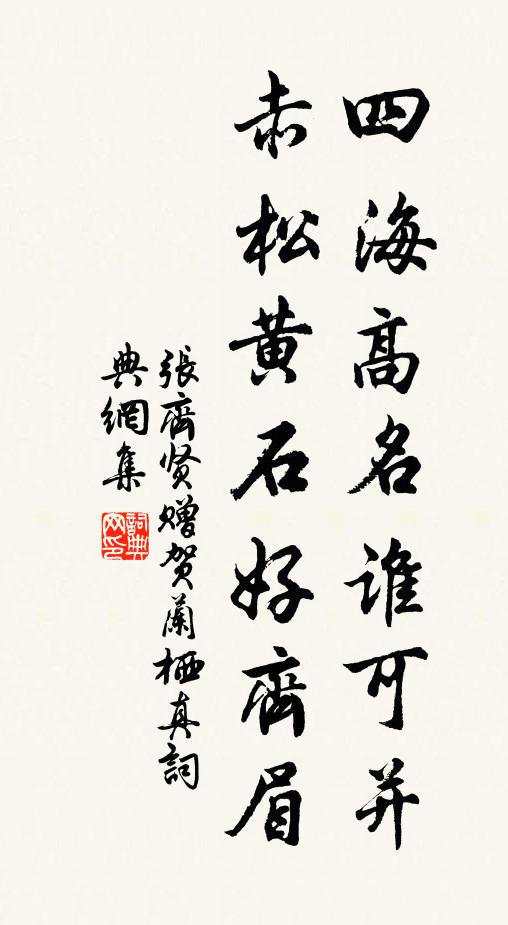 四海高名谁可并
赤松黄石好齊眉
張齊贤赠贺蘭栖真詞
典網集
詞典网印